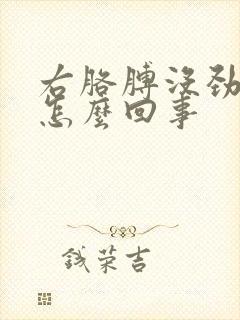 右胳膊没劲
怎麼回事
钱荣吉